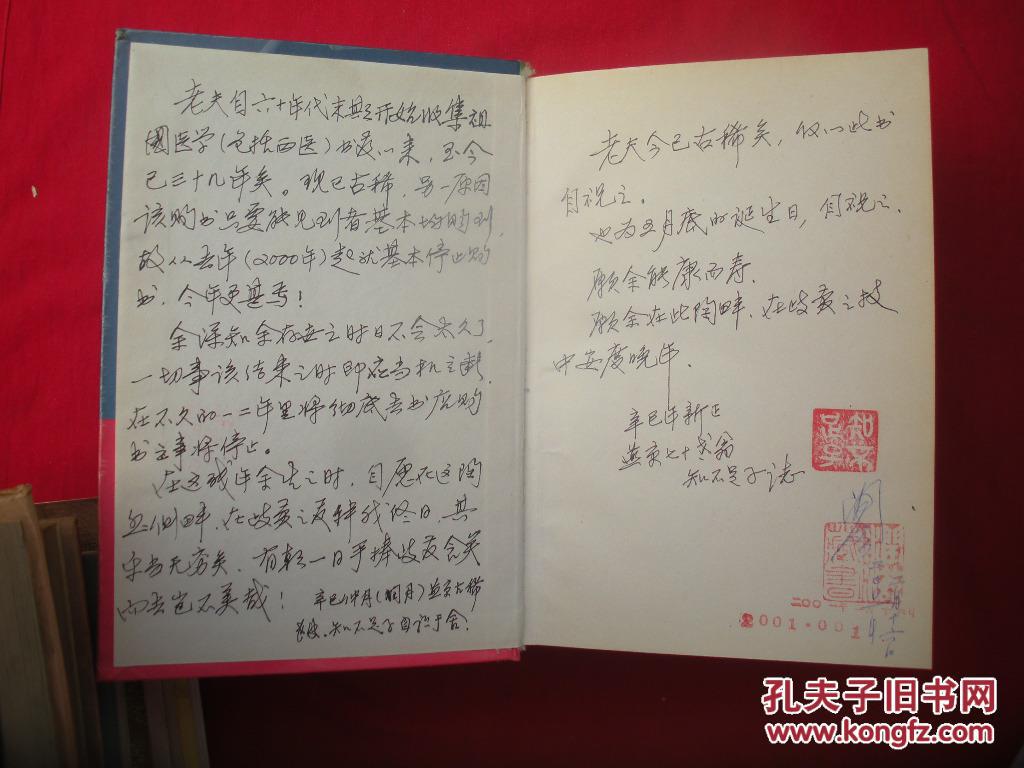 老夫自六十年代末期开始收集祖
國医学(包括西医)书籍以来,至今
已三十几年矣。现已古稀,另一原因
该购书只要能见到者基本均购到,
故从去年(2000年)起就基本停止购
书,今年更甚焉!
余深知余存世之时日不会太久了,
一切事该结束之时即应当机立断,
在不久的一二年里将彻底去书店购
书之事将停止。
在这残年余生之时,自愿在这陶
侧畔,在岐黄之
无穷矣,有朝一日手捧岐黄含笑
而去岂不美哉!
辛巳仲月(润月)燕京古稀
知不足子自识于舍.
老夫今已古稀矣,仅以此书
自祝之。
也为五月底的诞生日,自祝之.
愿余能康而寿.
愿余在此陶畔,在岐黄之技
中安度晚年.
辛巳年新正
燕京七十弍翁
知不足子志
知不足子
藏書
二00
2001.001
孔夫子旧书网
www.kongfz.com